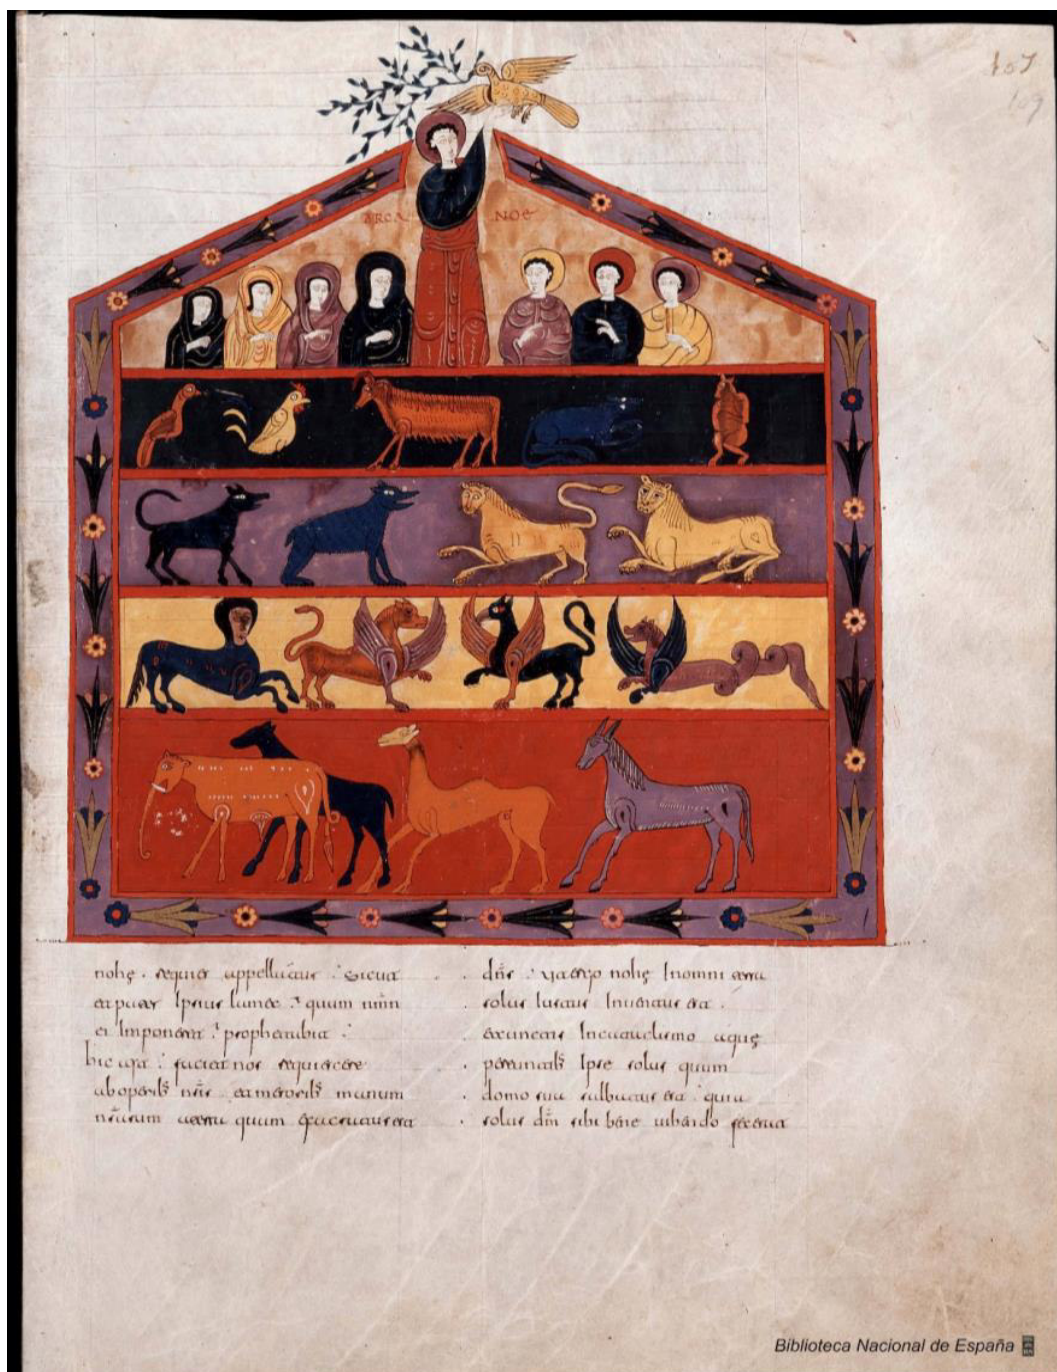 107
109
ARCA NOE
nohę . requies appellatur : sicut
et pater Ipsius lamec : quum
ei Imponeret : prophetabit :
hic ait : faciat nos requiescere
ab operibs nsis et meroribs manuum
nsarum quum
dns : ergo nohę In omni terra
solus iustus Inuentus est .
cunctis In cataclismo aquis
pereuntibs Ipse solus quum
domo sua salbatus est : quia
solus dm sibi
Biblioteca Nacional de España